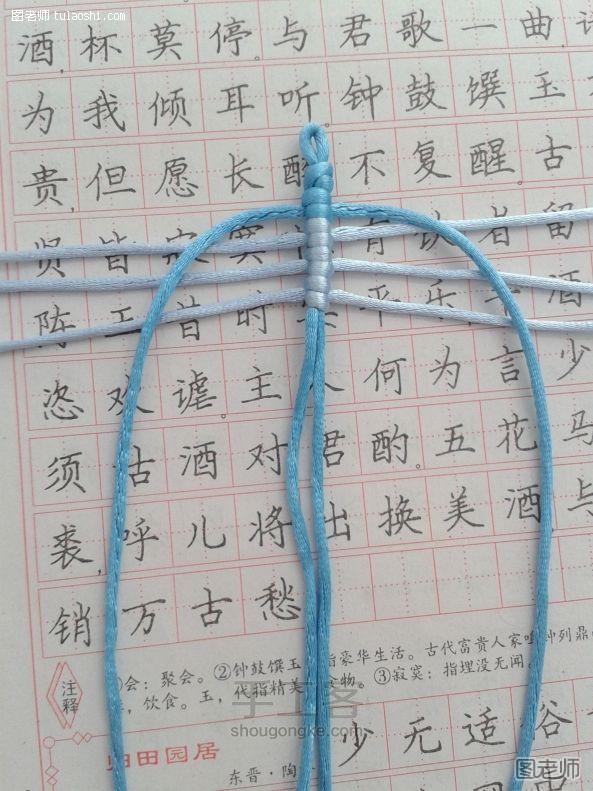 图老师 tulaoshi.com
酒,杯莫停。与君歌一曲,
为我倾耳听。钟鼓馔玉
贵,但愿长醉不复醒。古
贤皆寂寞 有饮者留
陈王昔时 平乐,斗酒
恣欢谑。主人何为言少
须古酒对君酌。五花马
裘,呼儿将出换美酒,与
销万古愁
注释
会:聚会。②钟鼓馔玉:指豪华生活。古代富贵人家 钟列鼎
,饮食。玉,代指精美 物。③寂寞:指埋没无闻。
手工客
shougongke.com
归田园居
少无适俗
东晋·陶
图老师